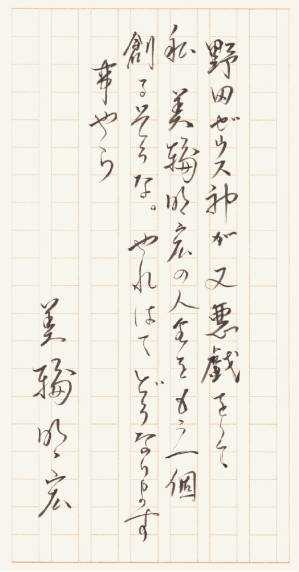 野田ゼウス神が又悪戯をして
私 美輪明宏の人生をもう一個
創るそうな。やれはてどうなります
事やら
美輪明宏